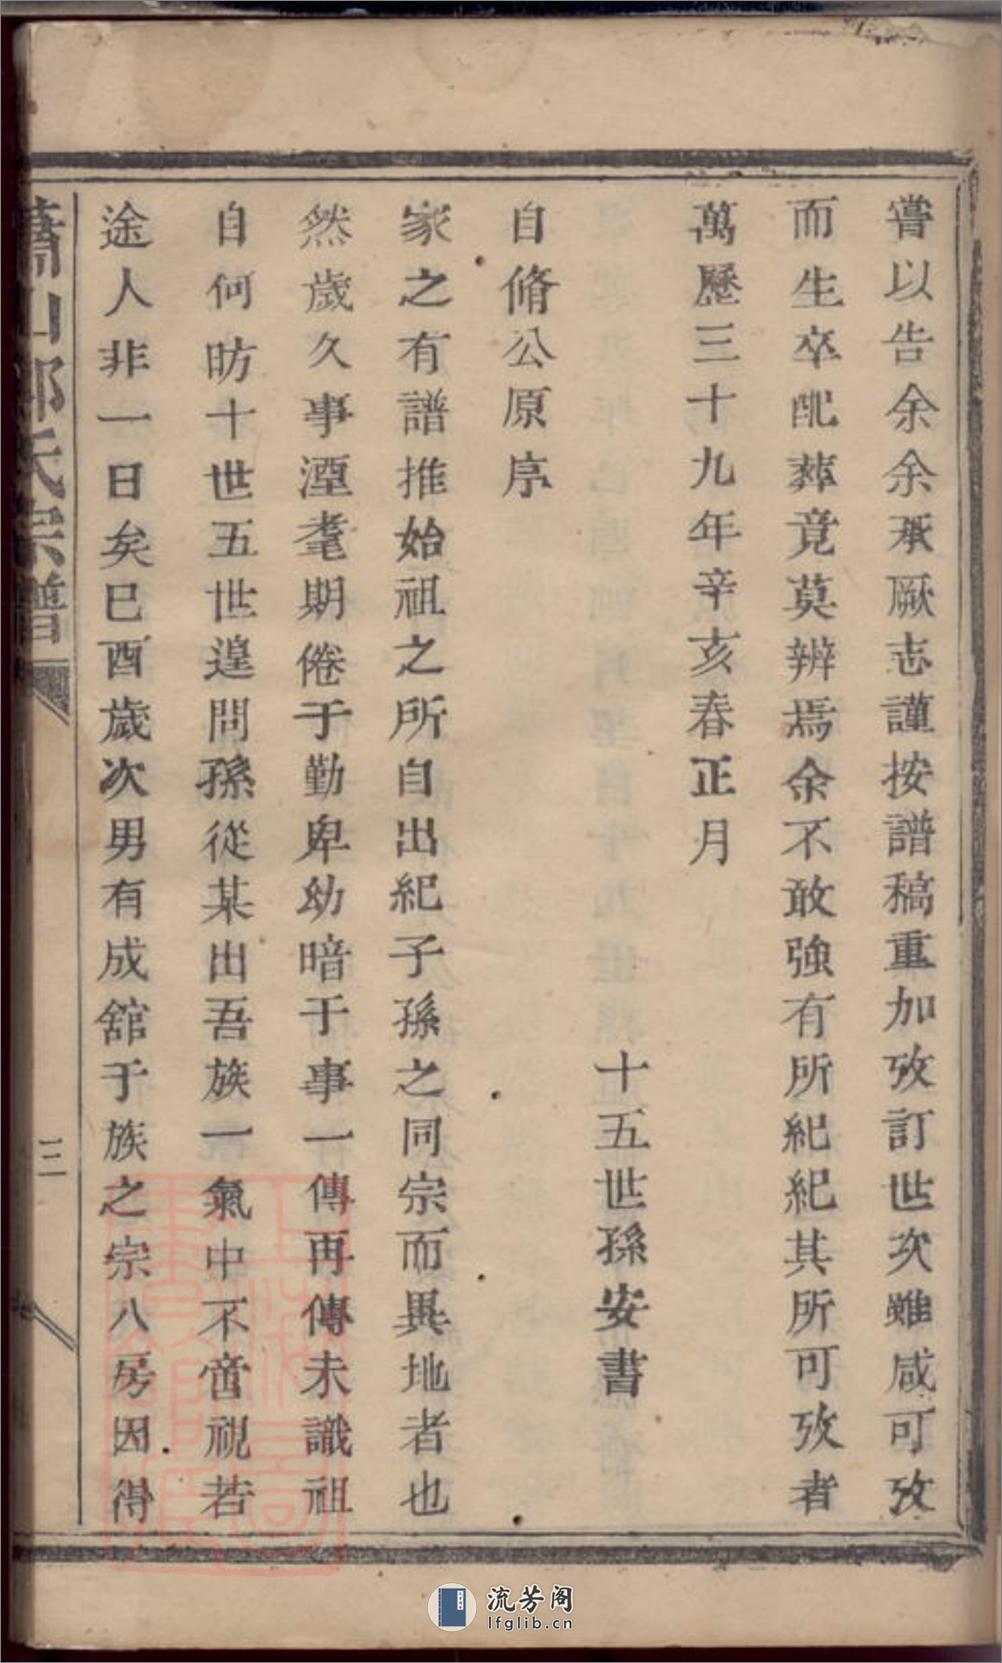 嘗以告余余承厥志謹按譜稿重加攷訂世次雖咸可攷
而生卒配葬竟莫辨焉余不敢強有所紀紀其所可攷者
萬歷三十九年辛亥春正月
十五世孫安書
自脩公原序
家之有譜推始祖之所自出紀子孫之同宗而異地者也
然歲久事湮耄期倦于勤卑幼暗于事一傳再傳未識祖
自何昉十世五世遑問孫從某出吾族一氣中不啻視若
途人非一日矣巳酉歲次男有成舘于族之宗八房因得
蕭山郭氏宗譜
三
上海圖書館藏
流芳阁
lfglib.cn